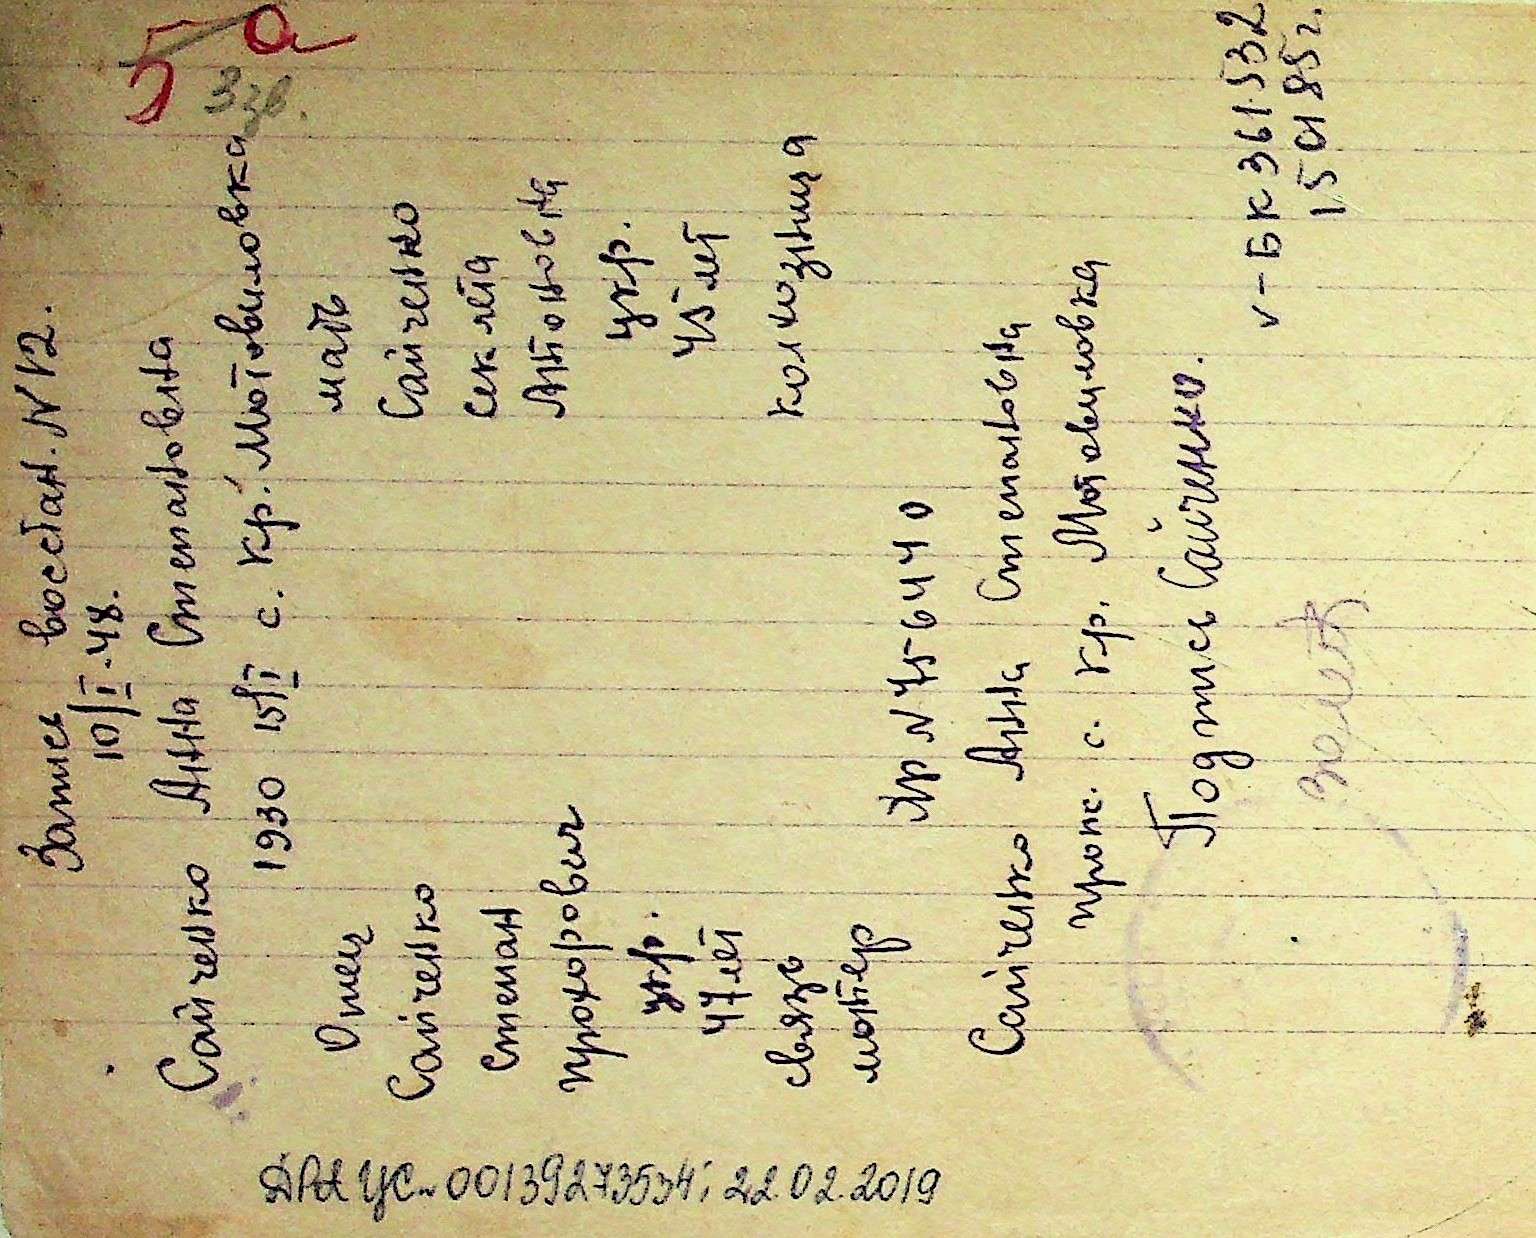 5а
Ззв.
Запись восстан. N 12.
10/I-48.
Сайченко Анна Степановна
1930 15/I с. Кр. Мотовиловка
Отец
мать
Сайченко
Сайченко
Степан
Секлета
Прохорович
Антоновна
укр.
укр.
47 лет
45 лет
связь
колхозница
монтер
N 456440
Сайченко Анна Степановна
прож. с. Кр. Мотовиловка
Подпись Сайченко.
v-БК 361532
15 01 85г.
ДРАЦС-00139273534; 22.02.2019